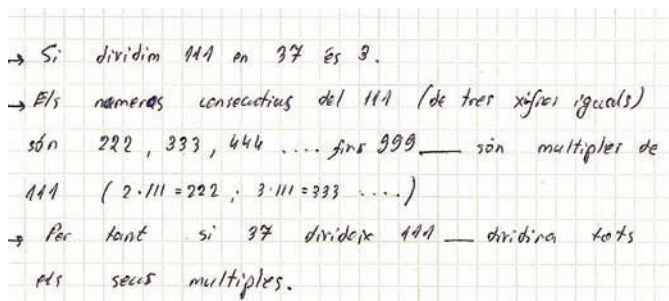 → Si dividim 111 en 37 és 3.
→ Els nameros consecutius del 111 (de tres xifres iguals)
són 222, 333, 444 .... fins 999 __ són multiples de
111 (2·111=222, 3·111=333 ....)
→ Per tant si 37 divideix 111 __ dividira tots
els seus multiples.